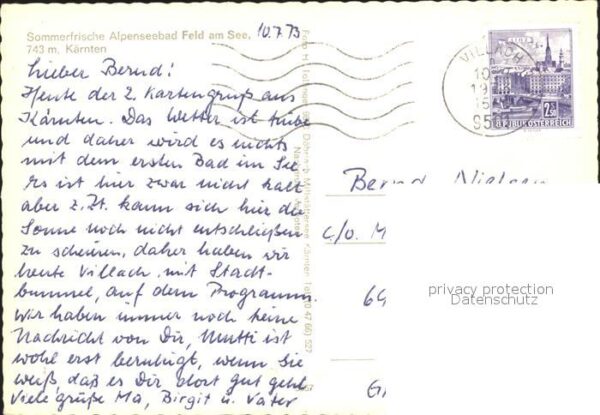 Sommerfrische Alpenseebad Feld am See,
743 m, Kärnten
10.7.73
Lieber Bernd!
Heute der 2. Kartengruß aus
Kärnten. Das Wetter ist trübe
und daher wird es nichts
mit dem ersten Bad im See
Es ist hier zwar nicht kalt
aber z. Zt. kann sich hier die
Sonne noch nicht entschließen
zu scheinen, daher haben wir
heute Villach, mit Stadt-
bummel, auf dem Programm.
Wir haben immer noch keine
Nachricht von Dir, Mutti ist
wohl erst beruhigt, wenn sie
weiß, daß es Dir dort gut geht
Viele grüße Ma, Birgit u. Vater
VILLACH
LINZ
REPUBLIK ÖSTERREICH
Bernd Nielsen
c/o. M
privacy protection
Datenschutz